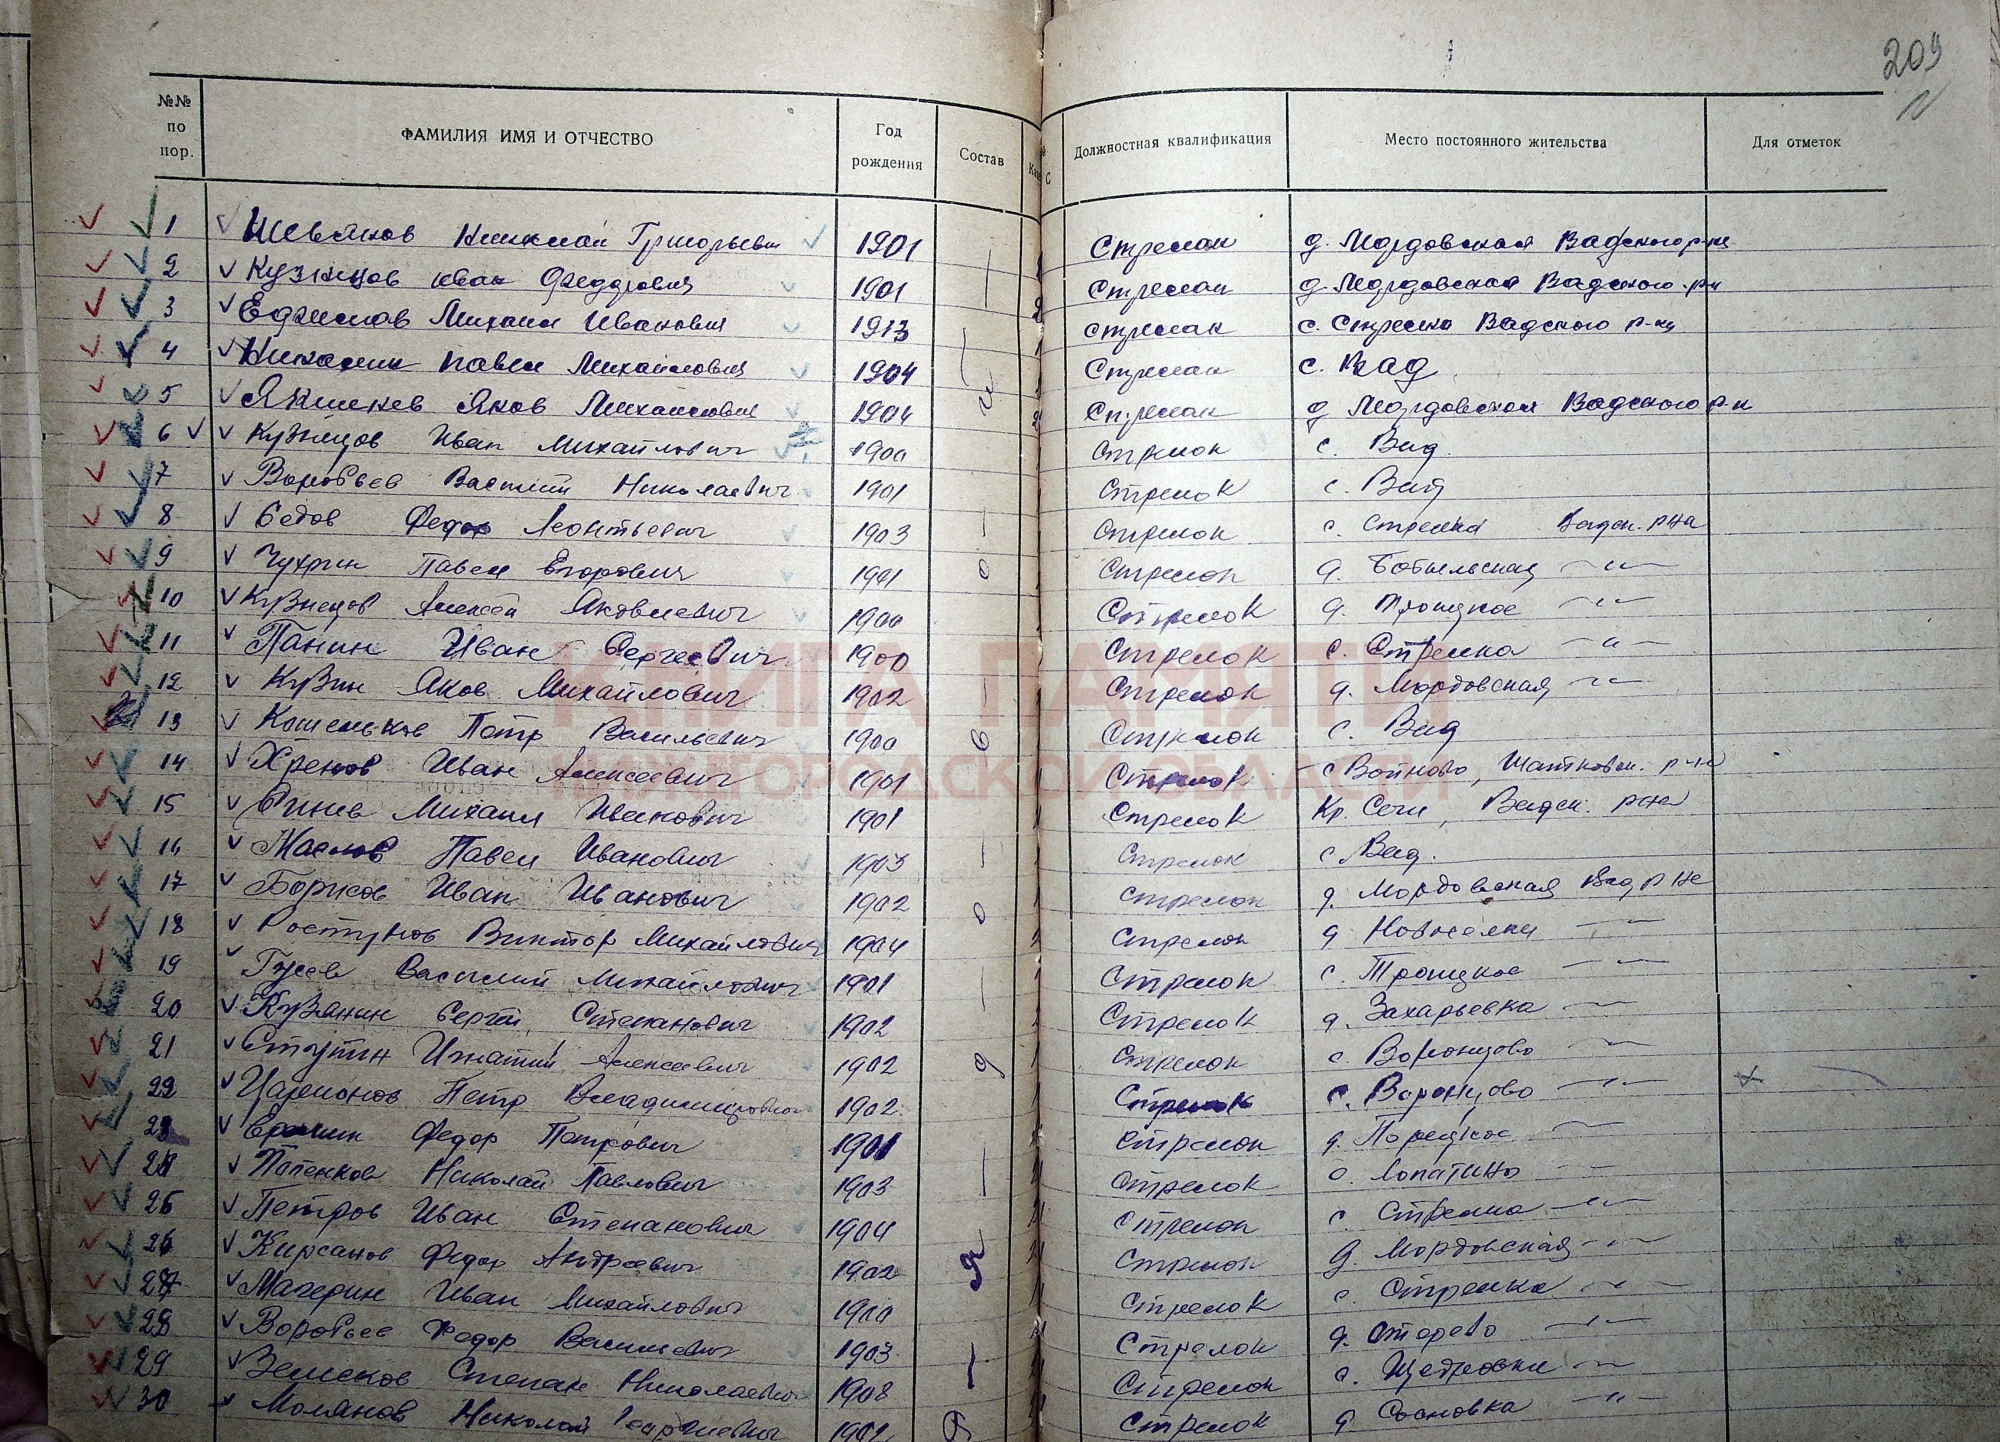 209
№№ по пор. ФАМИЛИЯ ИМЯ И ОТЧЕСТВО Год рождения Состав Должностная квалификация Место постоянного жительства Для отметок
1 Шевяков Николай Григорьевич 1901 Стрелок д. Мордовская Вадского р-на
2 Кузнецов Иван Федорович 1901 Стрелок д. Мордовская Вадского р-н
3 Михаил Иванович 1913 Стрелок с. Стрелка Вадского р-на
4 Павел Михайлович 1904 Стрелок с. Вад
5 Якимчев Яков Михайлович 1904 Стрелок д. Мордовская Вадского р-н
6 Кузнецов Иван Михайлович 1900 Стрелок с. Вад
7 Воробьев Василий Николаевич 1901 Стрелок с. Вад
8 Седов Федор Леонтьевич 1903 Стрелок с. Стрелка Вадск. р-на
9 Чухрин Павел Егорович 1901 Стрелок д. Бобыльская -"-
10 Кузнецов Алексей Яковлевич 1900 Стрелок д. Троицкое -"-
11 Панин Иван Сергеевич 1900 Стрелок с. Стрелка -"-
12 Кузин Яков Михайлович 1902 Стрелок д. Мордовская -"-
13 Кошельков Петр Васильевич 1900 Стрелок с. Вад
14 Хренов Иван Алексеевич 1901 Стрелок с Войново, Шатковск. р-н
15 Михаил Иванович 1901 Стрелок Кр. Сечи, Вадск. р-на
16 Маслов Павел Иванович 1903 Стрелок с Вад.
17 Борисов Иван Иванович 1902 Стрелок д. Мордовская Вад р-на
18 Ростунов Виктор Михайлович 1904 Стрелок д Новоселки -"-
19 Гусев Василий Михайлович 1901 Стрелок с. Троицкое -"-
20 Кузянин Сергей Степанович 1902 Стрелок д. Захарьевка -"-
21 Ступин Игнатий Алексеевич 1902 Стрелок с. Воронцово -"-
22 Петр Владимирович 1902 Стрелок с. Воронцово -"-
23 Федор Петрович 1901 Стрелок д. Порецкое -"-
24 Папенков Николай Павлович 1903 Стрелок с. Лопатино -"-
25 Петров Иван Степанович 1904 Стрелок с. Стрелка -"-
26 Кирсанов Федор Андреевич 1902 Стрелок д. Мордовская -"-
27 Материн Иван Михайлович 1900 Стрелок с. Стрелка -"-
28 Воробьев Федор Васильевич 1903 Стрелок д. -"-
29 Земсков Степан Николаевич 1908 Стрелок -"-
30 Молянов Николай Георгиевич 1902 Стрелок д. Сосновка -"-
КНИГА ПАМЯТИ
НИЖЕГОРОДСКОЙ ОБЛАСТИ